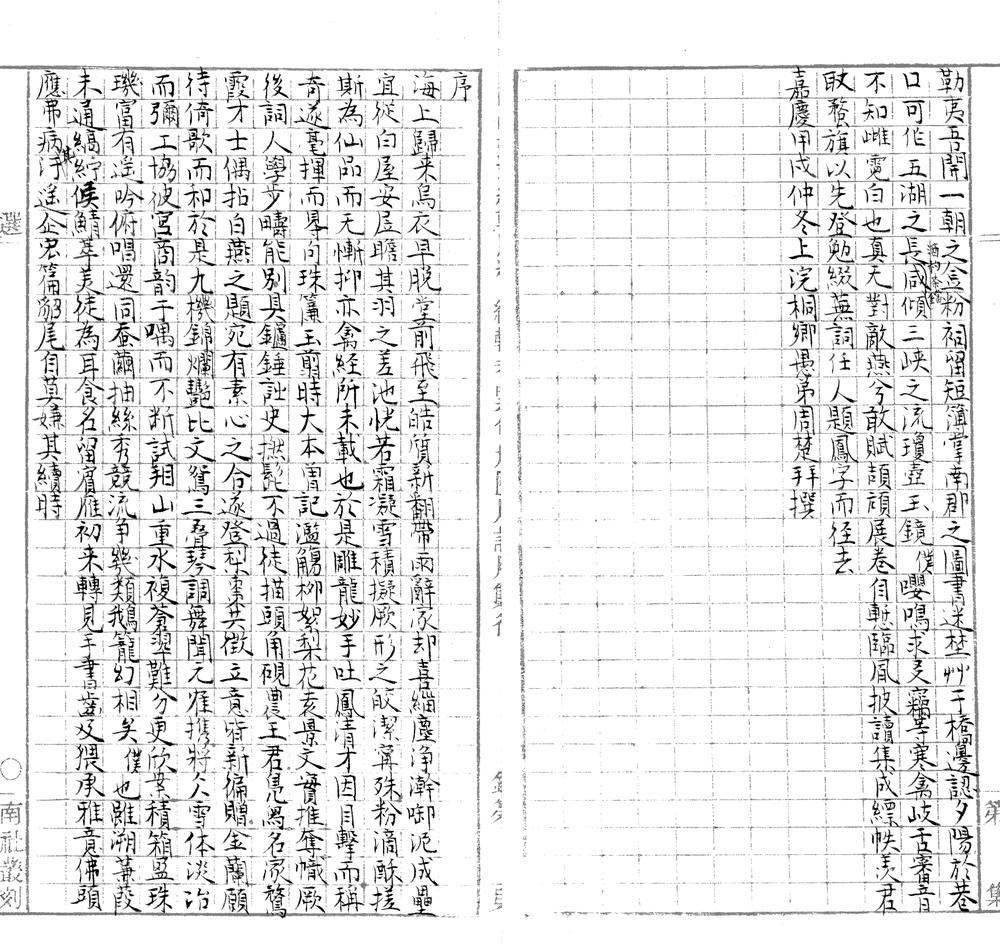 勒夷吾開一朝之奩粉袑留短簿掌南郡之圖書迷埜艸于橋邊認夕陽於巷
口可作五湖之長酒杓茶鐺咸傾三峽之流瓊壺玉鏡僕嚶鳴求友竊等寒禽岐舌審音
不知雌霓白也真无對敵燕兮敢賦頡頏展卷自慙臨風披讀集成縹帙羨君
蝥旗以先登勉綴蕪詞任人題鳳字而径去
嘉慶甲戌仲冬上浣桐鄉愚弟周楚拜撰
第 集
序
海上歸来烏衣早脫堂前飛至皓質新翻帶雨辭家却喜緇塵淨澣啣泥成壘
宜從白屋安居瞻其羽之差池恍若霜凝雪積擬厥形之皎潔寧殊粉滴酥搓
斯為仙品而无慚抑亦禽經所未載也於是雕龍妙手吐鳳清才因目擊而稱
奇遂毫揮而尋句珠簾玉剪時大本曾記濫觴柳絮梨花袁景文實推奪幟厥
後詞人學步疇能別具鑪錘史撚髭不過徒描頭角硯農王君為名家騖
霞才士偶拈白燕之題宛有素心之合遂登梨棗共徵立意新徧贈金蘭願
待倚歌而和於是九機錦爛豔比文鴛三疊琴調舞聞元隺携將人雪体淡冶
而彌工協彼宮商韵于喁而不断試翔山重水複蒼翠難分更欣案積箱盈珠
璣富有遥吟俯唱還同蚕繭抽絲秀競流争幾類鵝籠幻相矣僕也雖溯蒹葭
未通縞紵侯鯖萃美徒為耳食名留賔雁初来轉見手書齒及猥承雅意佛頭
應弗病其汙遥企宏篇貂尾自莫嫌其續時
選
南社叢刻